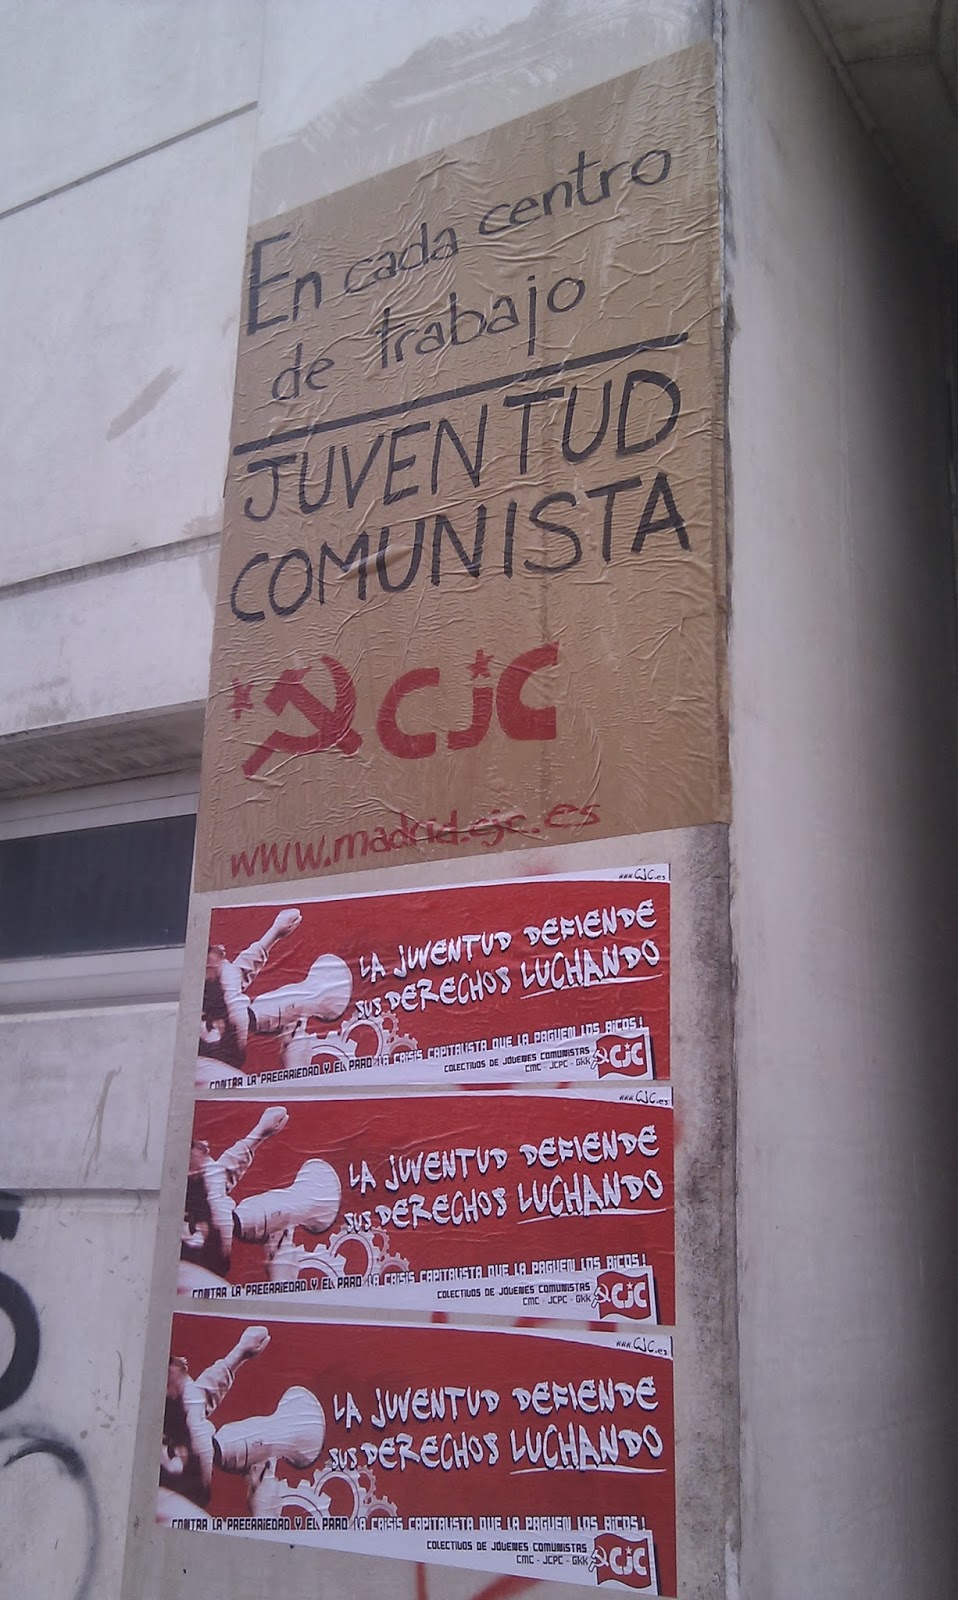 En cada centro
de trabajo
JUVENTUD
COMUNISTA
CJC
www.madrid.cjc.es
www.CJC.es
LA JUVENTUD DEFIENDE
SUS DERECHOS LUCHANDO
CONTRA LA PRECARIEDAD Y EL PARO LA CRISIS CAPITALISTA QUE LA PAGUEN LOS RICOS!
COLECTIVOS DE JÓVENES COMUNISTAS
CMC - JCPC - GKK
CJC
www.CJC.es
LA JUVENTUD DEFIENDE
SUS DERECHOS LUCHANDO
CONTRA LA PRECARIEDAD Y EL PARO LA CRISIS CAPITALISTA QUE LA PAGUEN LOS RICOS!
COLECTIVOS DE JÓVENES COMUNISTAS
CMC - JCPC - GKK
CJC
www.CJC.es
LA JUVENTUD DEFIENDE
SUS DERECHOS LUCHANDO
CONTRA LA PRECARIEDAD Y EL PARO LA CRISIS CAPITALISTA QUE LA PAGUEN LOS RICOS!
COLECTIVOS DE JÓVENES COMUNISTAS
CMC - JCPC - GKK
CJC